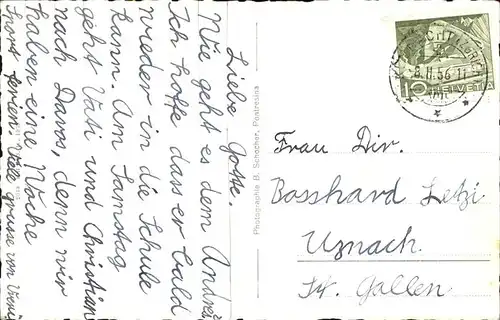 Liebe Gotte.
Wie geht es dem Andrea
Ich hoffe dass er bald
wieder in die Schule
kann. Am Samstag
geht Vati und Christian
nach Davos, denn wir
haben eine Woche
Sport ferien. Viele grüsse von
Photographie B. Schocher, Pontresina
8.II.56
10 HELVETIA
Frau Dir.
Bosshard Letzi
Uznach.
St. Gallen